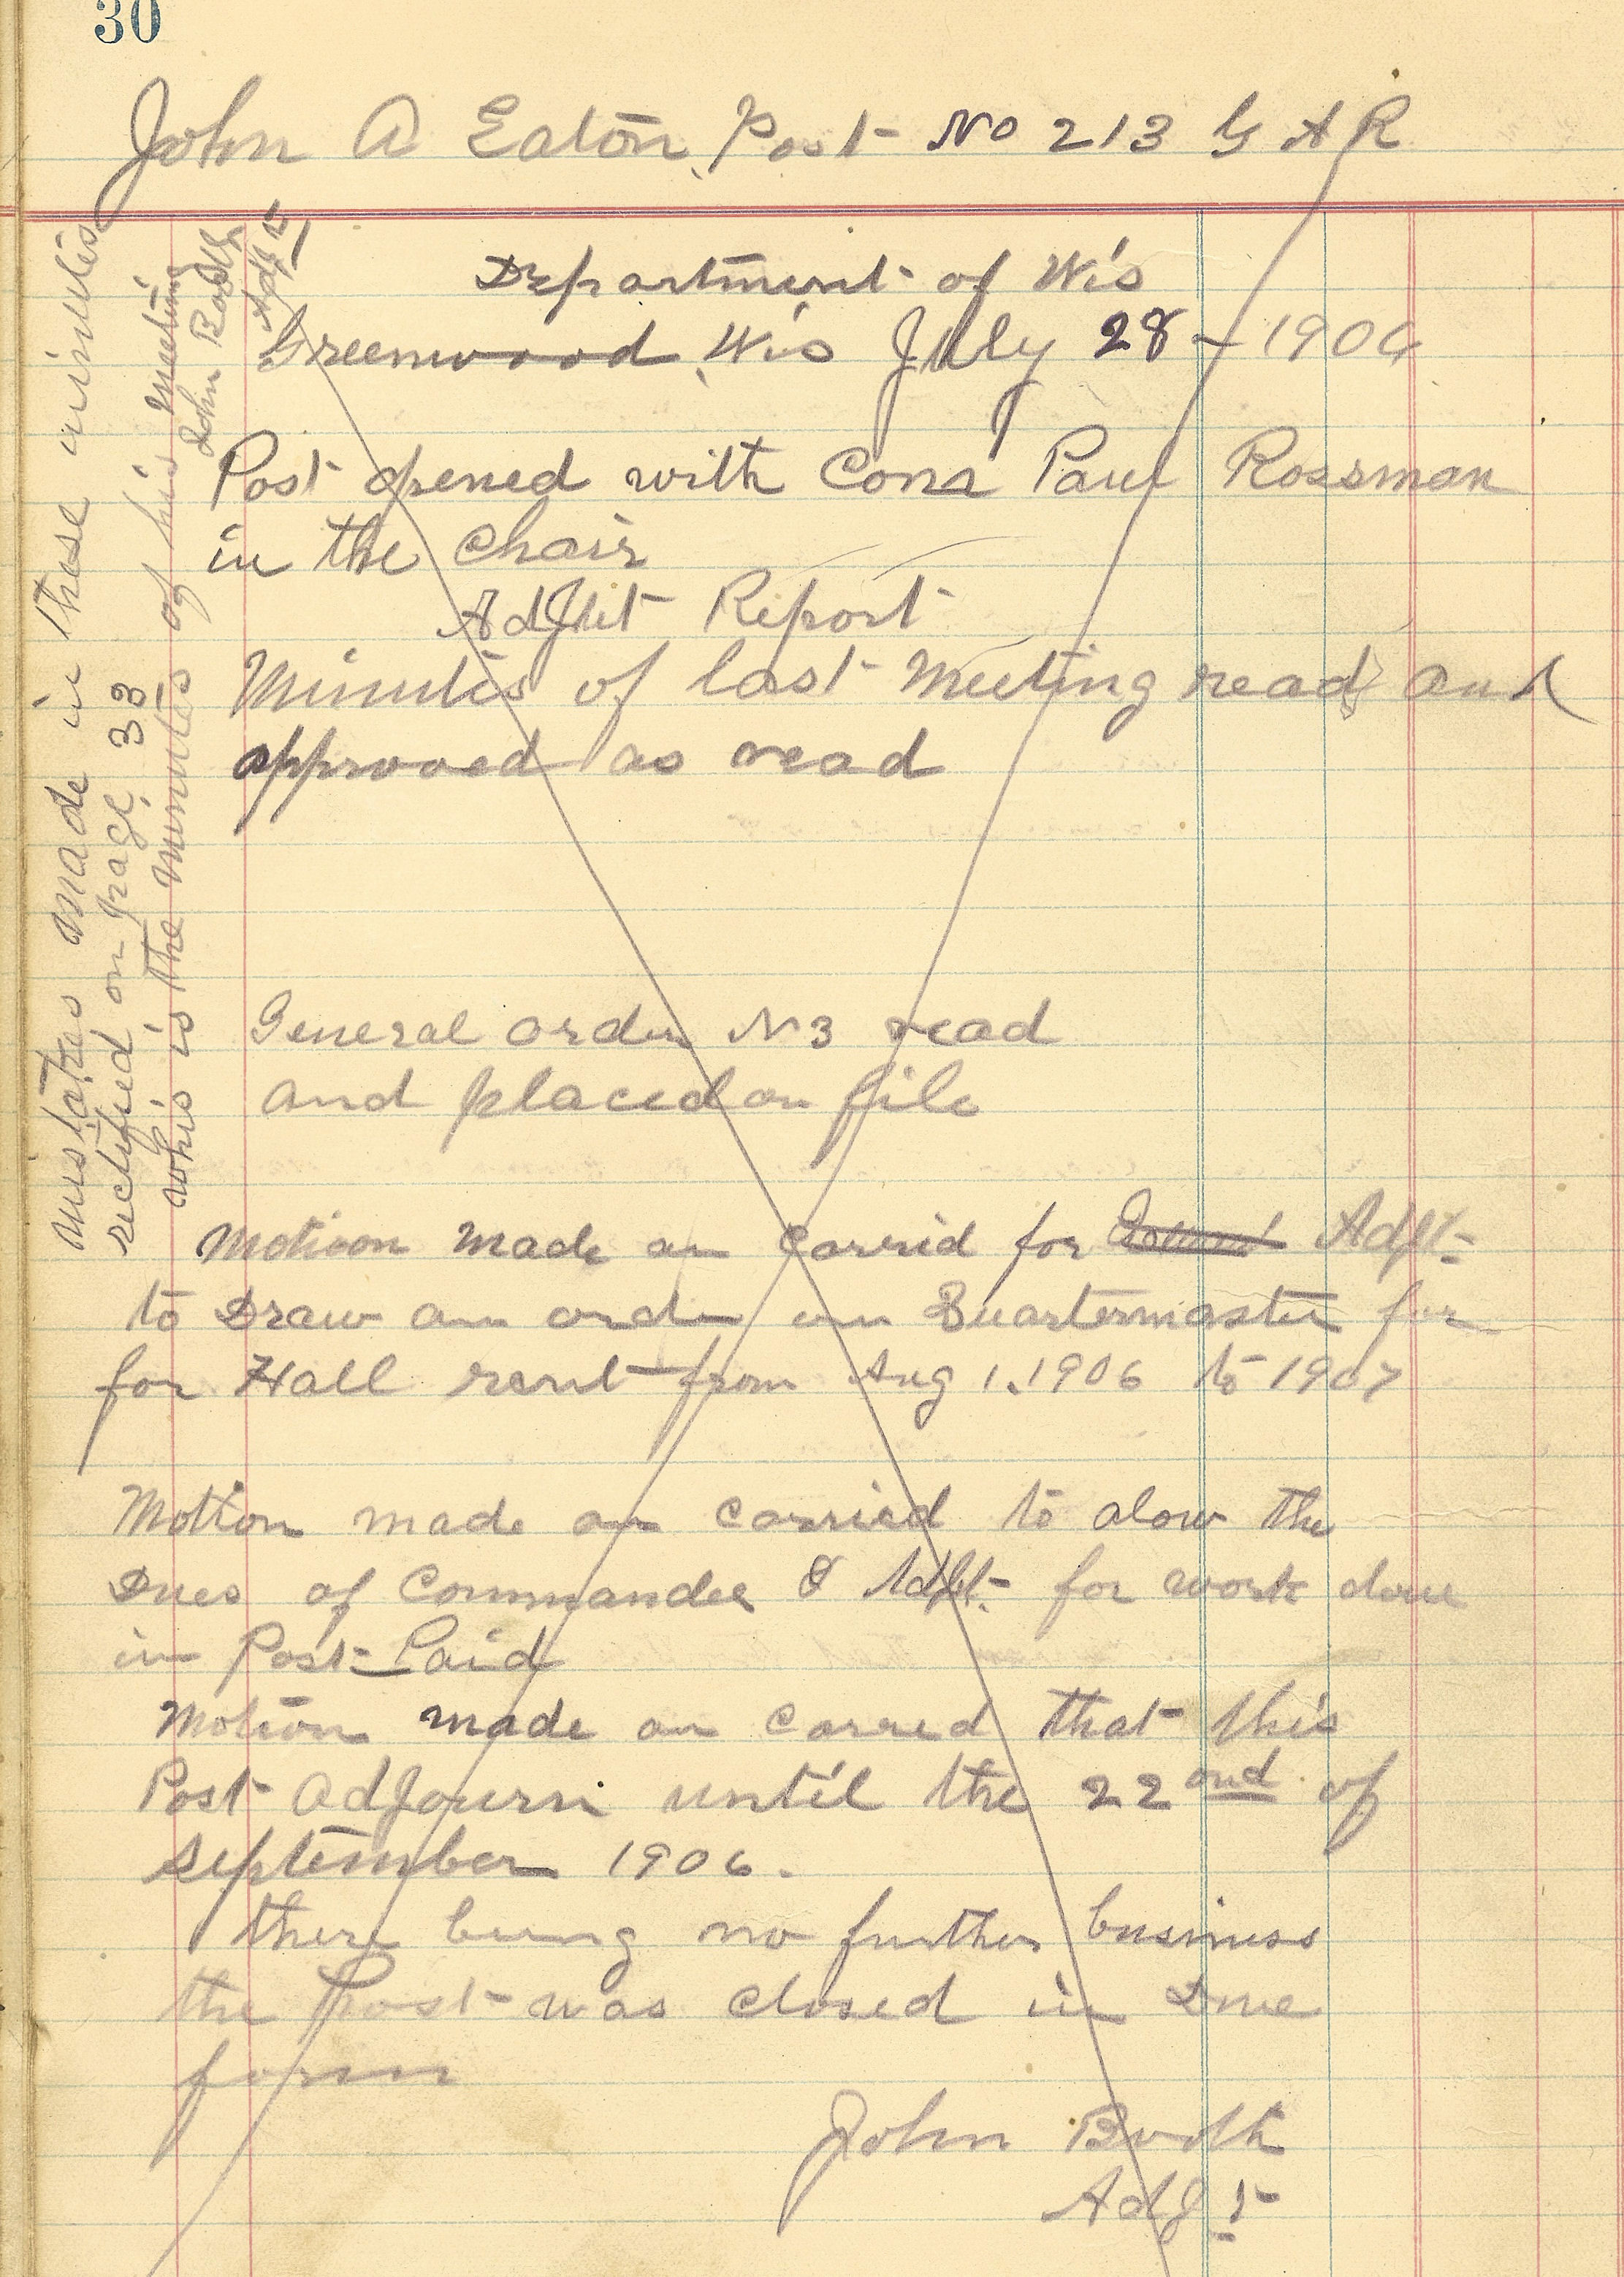 30
John A Eaton Post No 213 G A R
Department of Wis
Greenwood, Wis July 28 - 1906
Post opened with Com Paul Rossman
in the Chair
AdJut Report
Minutes of last Meeting read and
approved as read
General order N 3 read
and placed on file
Motioon made an Carrid for Adjt-
to Draw an order on Quartermaster for
for Hall rent from Aug 1. 1906 to 1907
Motion made an Carried to alow the
Dues of Commander & Adjt- for work done
in Post Paid
Motion made an Carred that this
Post AdJourn until the 22 ond of
September 1906.
there being no further business
the Post was Closed in Due
form
John Booth
AdJt
Mistakes made in these minutes
rectified on page 33
whis is the minutes of his meeting
John Booth
Adjt